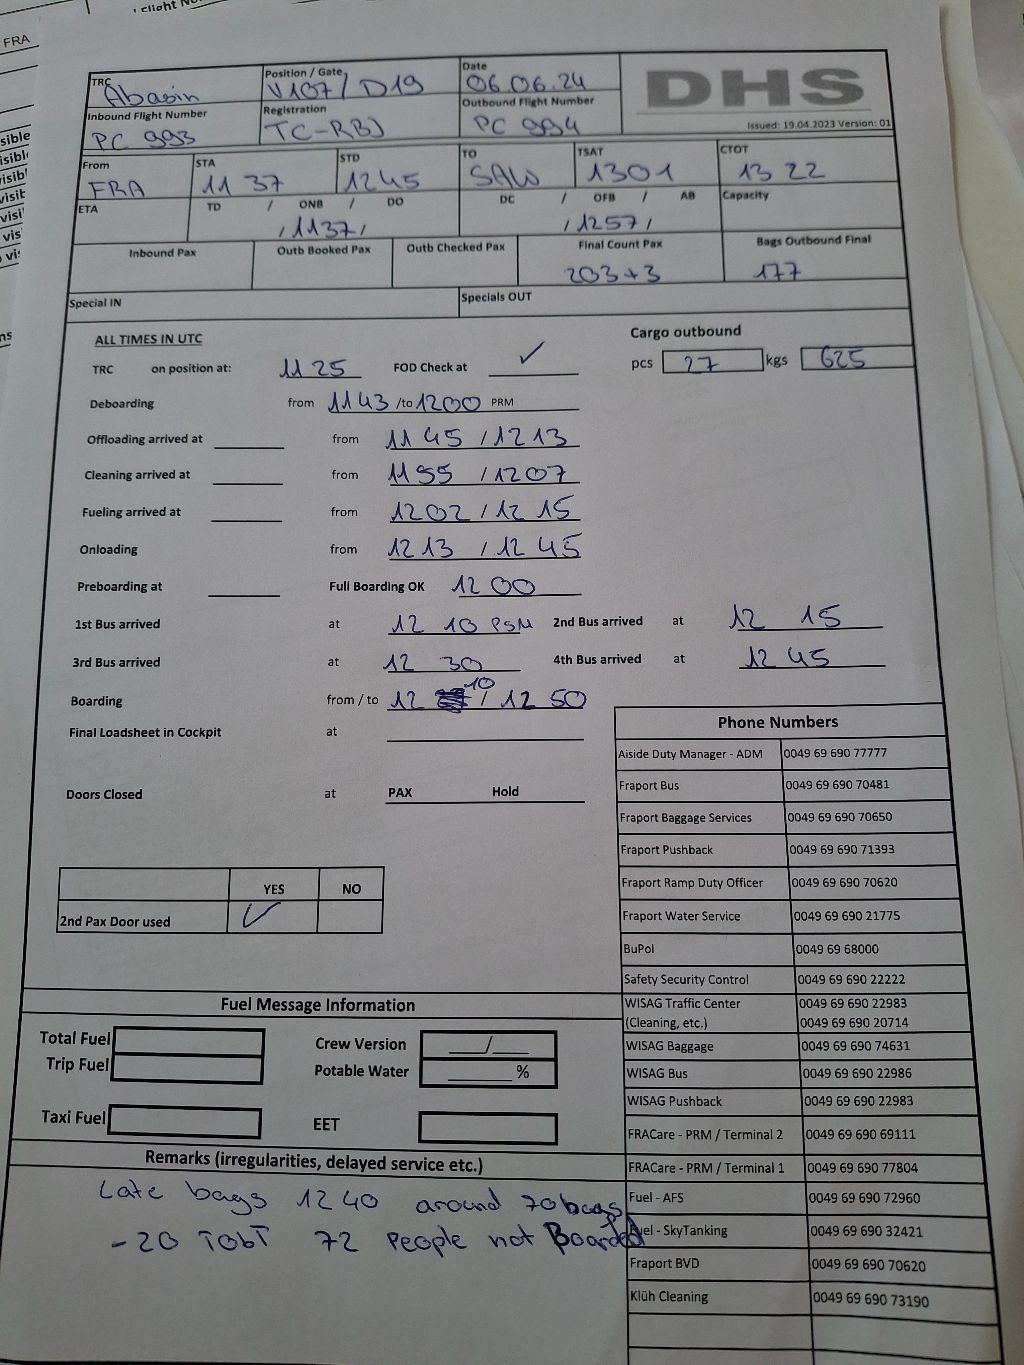 FRA
TRC Abasin Position / Gate V107 / D19 Date 06.06.24 DHS
Inbound Flight Number PC 993 Registration TC-RBJ Outbound Flight Number PC 994 Issued: 19.04.2023 Version: 01
From FRA STA 11 37 STD 1245 TO SAW TSAT 1301 CTOT 13 22
ETA TD / ONB / DO DC / OFB / AB Capacity
/ 1137 / / 1257 /
Inbound Pax Outb Booked Pax Outb Checked Pax Final Count Pax Bags Outbound Final
203+3 177
Special IN Specials OUT
ALL TIMES IN UTC Cargo outbound
TRC on position at: 11 25 FOD Check at ✓ pcs 27 kgs 625
Deboarding from 1143 /to 1200 PRM
Offloading arrived at from 11 45 / 1213
Cleaning arrived at from 1155 / 1207
Fueling arrived at from 1202 / 12 15
Onloading from 1213 / 12 45
Preboarding at Full Boarding OK 12 00
1st Bus arrived at 12 10 PSM 2nd Bus arrived at 12 15
3rd Bus arrived at 12 30 4th Bus arrived at 12 45
Boarding from / to 12 10 / 12 50
Final Loadsheet in Cockpit at
Doors Closed at PAX Hold
YES NO
2nd Pax Door used ✓
Phone Numbers
Aiside Duty Manager - ADM 0049 69 690 77777
Fraport Bus 0049 69 690 70481
Fraport Baggage Services 0049 69 690 70650
Fraport Pushback 0049 69 690 71393
Fraport Ramp Duty Officer 0049 69 690 70620
Fraport Water Service 0049 69 690 21775
BuPol 0049 69 68000
Safety Security Control 0049 69 690 22222
WISAG Traffic Center 0049 69 690 22983
(Cleaning, etc.) 0049 69 690 20714
WISAG Baggage 0049 69 690 74631
WISAG Bus 0049 69 690 22986
WISAG Pushback 0049 69 690 22983
FRACare - PRM / Terminal 2 0049 69 690 69111
FRACare - PRM / Terminal 1 0049 69 690 77804
Fuel - AFS 0049 69 690 72960
Fuel - SkyTanking 0049 69 690 32421
Fraport BVD 0049 69 690 70620
Klüh Cleaning 0049 69 690 73190
Fuel Message Information
Total Fuel Crew Version /
Trip Fuel Potable Water %
Taxi Fuel EET
Remarks (irregularities, delayed service etc.)
Late bags 1240 around 70 bags
- 20 TOBT 72 People not Boarded